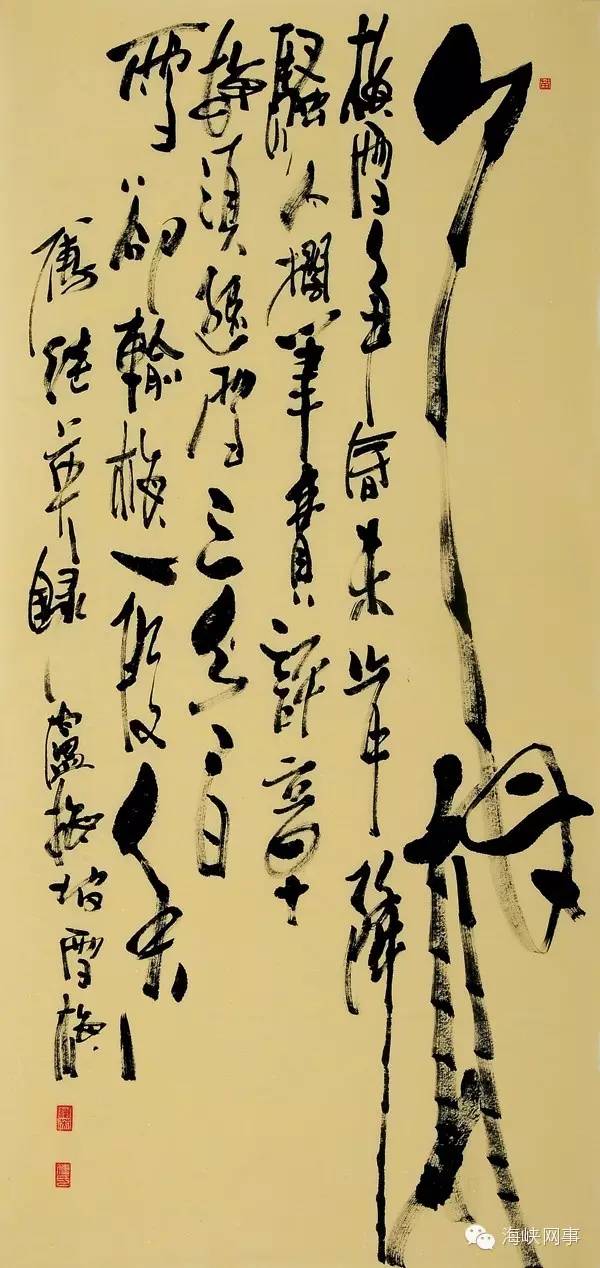 梅
梅雪爭春未肯降
騷人擱筆費評章
梅須遜雪三分白
雪卻輸梅一段香
草録 盧梅坡雪梅
海峡网事